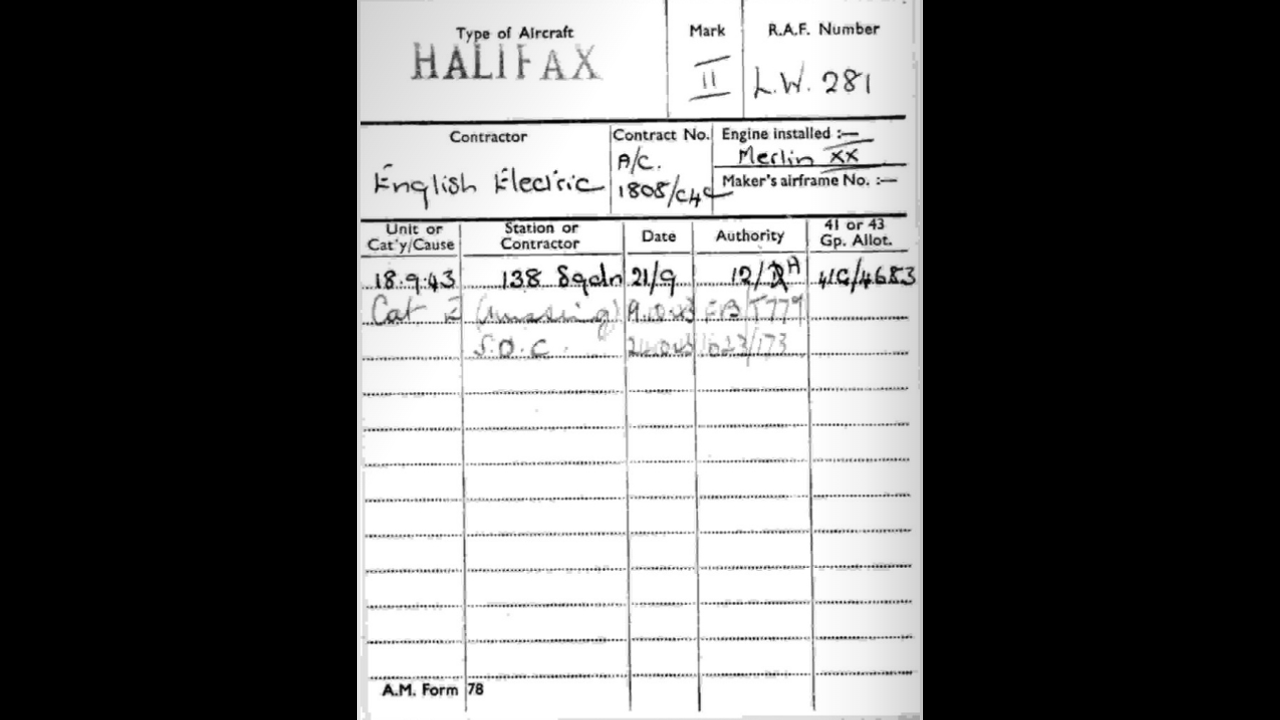 Type of Aircraft
HALIFAX
Mark
II
R.A.F. Number
L.W. 281
Contractor
English Electric
Contract No.
A/C.
1808/C4C
Engine installed :—
Merlin XX
Maker's airframe No. :—
Unit or Cat'y/Cause
Station or Contractor
Date
Authority
41 or 43 Gp. Allot.
18.9.43 138 Sqdn 21/9 12/ 41G/4683
Cat E (missing) FB/T779
S.O.C. /173
A.M. Form 78